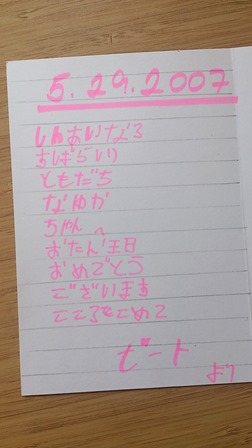 5.29.2007
しんあいなる
すばらしい
ともだち
なゆか
ちゃんへ
おたん王日
おめでとう
ございます
こころをこめて
ピートより